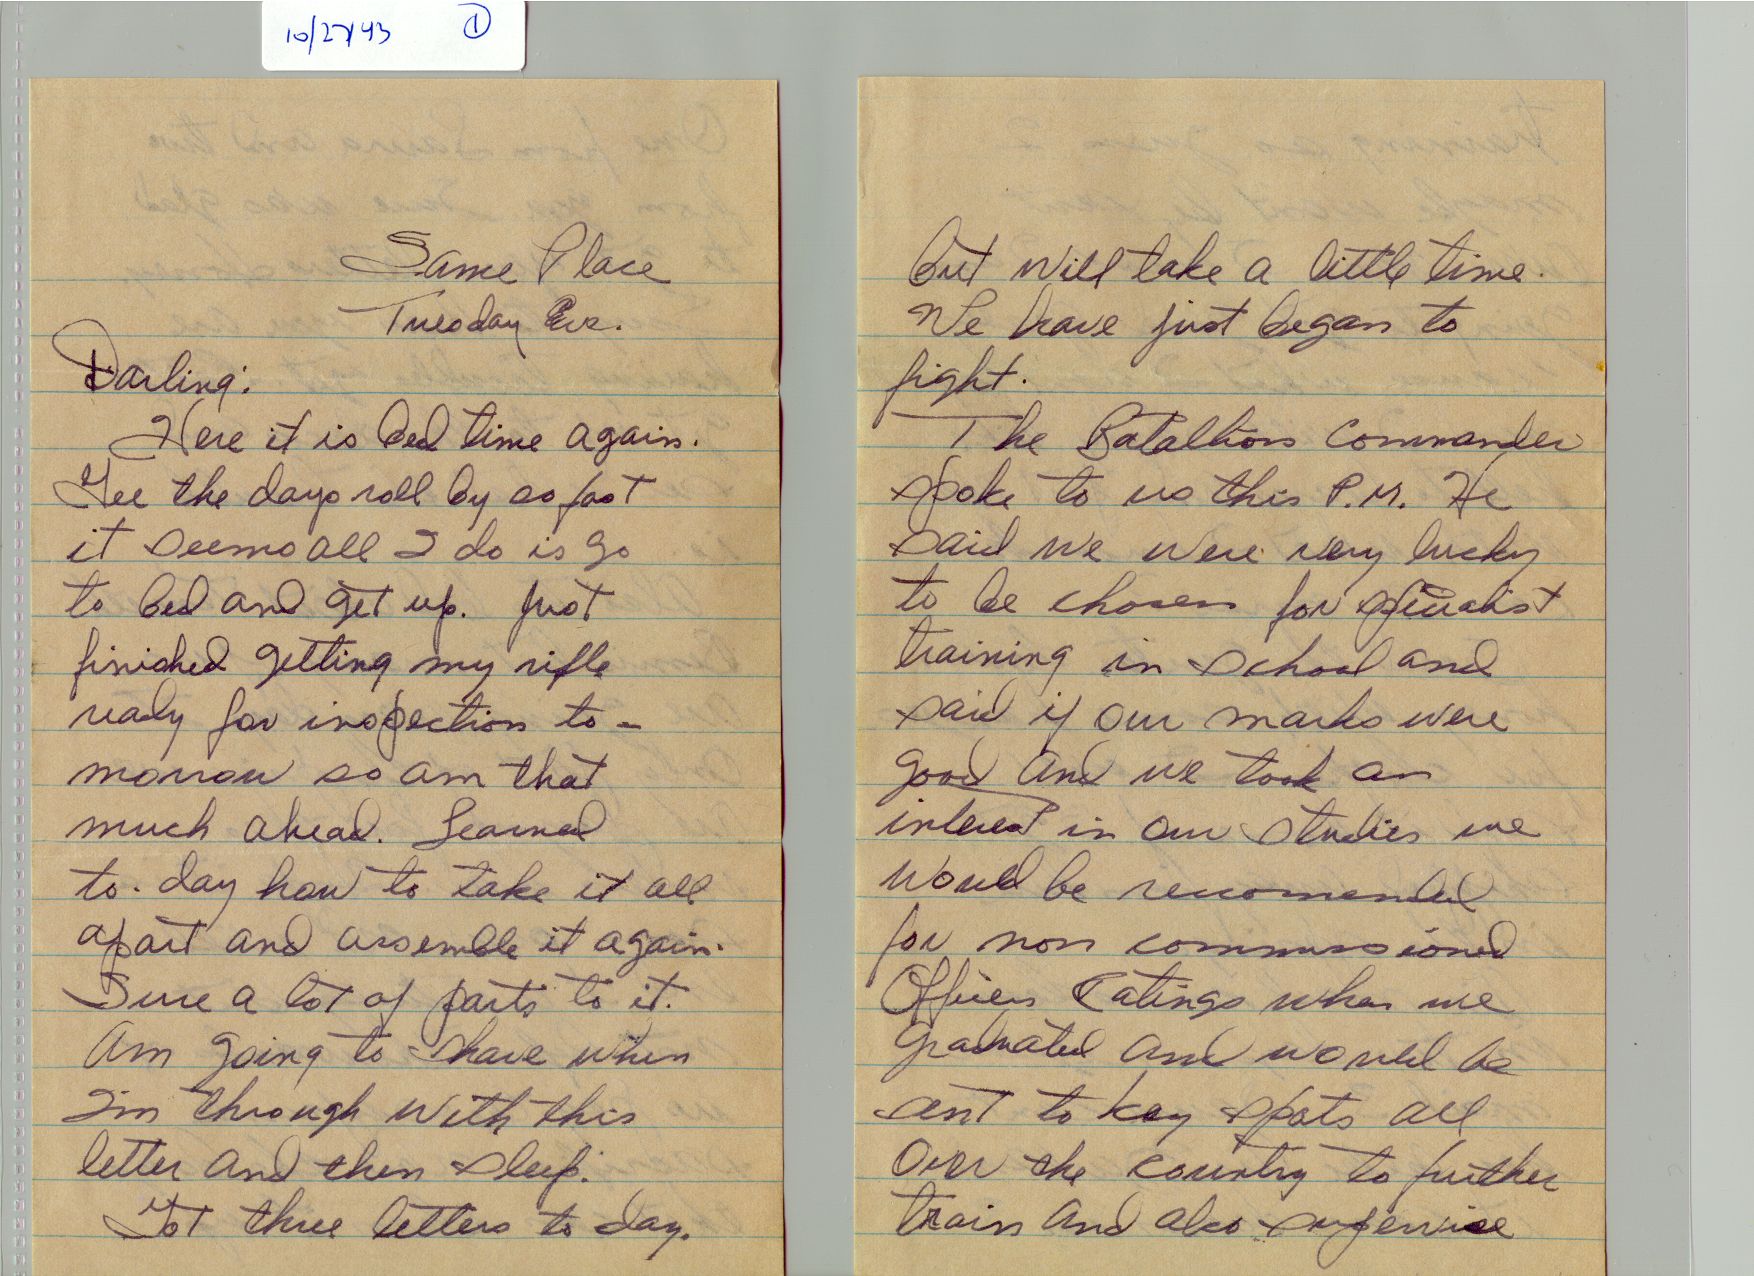 10/27/43 1
Same Place
Tuesday Eve.
Darling:
Here it is bed time again.
Gee the days roll by so fast
it seems all I do is go
to bed and get up. Just
finished getting my rifle
ready for inspection to-
morrow so am that
much ahead. Learned
to-day how to take it all
apart and assemble it again.
Sure a lot of parts to it.
Am going to shave when
I'm through with this
letter and then sleep.
Got three letters to day.
but will take a little time.
We have just began to
fight.
The Batallion Commander
spoke to us this P.M. He
said we were very lucky
to be chosen for specialist
training in school and
said if our marks were
good and we took an
interest in our studies we
would be reccomended
for non commissioned
Officers Ratings when we
graduated and would be
sent to key spots all
over the country to further
train and also supervise